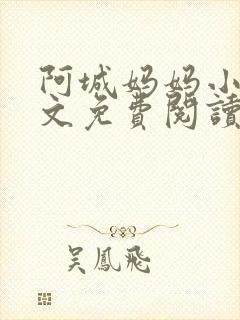 阿城妈妈小
文免費閱讀
吴鳳飛